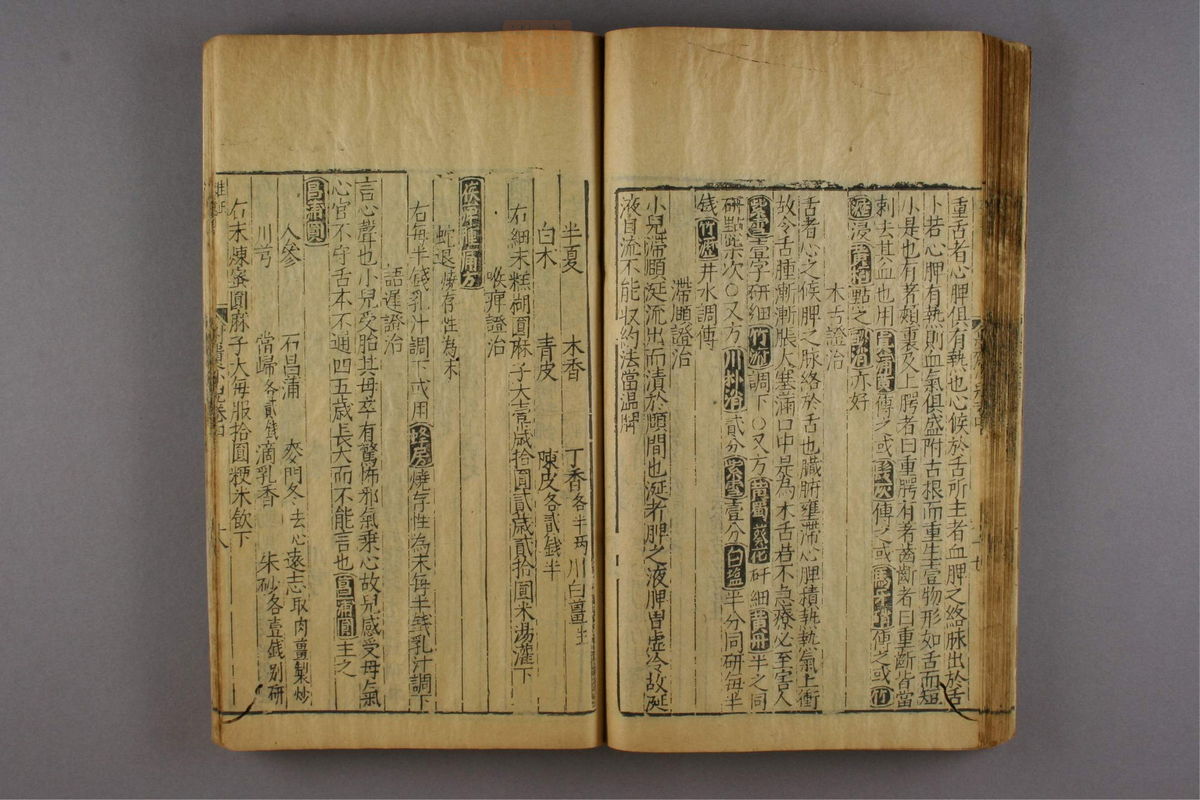 重舌者心脾俱有熱也心候於舌所主者血脾之絡脉出於舌
卜若心脾有熱則血氣俱盛附古根而重生壹物形如舌而短
小是也有著頰裏及上腭者曰重腭有著齒齗者曰重齗皆當
刺去其血也用眞蒲黃傅之或髮灰傅之或馬牙硝傅之或竹
瀝浸黄柏點之朴消亦好
木古證治
舌者心之候脾之脉絡於舌也臓腑壅滯心脾積熱熱氣上衝
故令舌腫漸漸脹大塞滿口中是為木舌若不急療必至害人
紫雪壹字研細竹瀝調下〇又方黄蜀葵花研細黄丹半之同
研點柒次〇又方川朴消貳分紫雪壹分白塩半分同研每半
錢竹瀝井水調傅
滯頤證治
小兒滯頤涎流出而漬於頤間也涎者脾之液脾胃虛冷故涎
液自流不能収約法當温脾
半夏 木香 丁香各半兩 川白薑生
白术 青皮 陳皮各貳錢半
右細末糕糊圓麻子大壹歲拾圓貳歲貳拾圓米湯灌下
喉痺證治
喉痺通用方
蛇退燒存性為末
右每半錢乳汁調下或用蜂房燒存性為末每半錢乳汁調下
語遲證治
言心聲也小兒受胎其母卒有驚怖邪氣乗心故兒感受母氣
心官不守舌本不通四五歲長大而不能言也菖蒲圓主之
昌蒲圓
人參 石昌蒲 麥門冬去心 遠志取肉薑製炒
川芎 當歸各貳錢 滴乳香 朱砂各壹錢別研
右末煉蜜圓麻子大每服拾圓粳米飲下